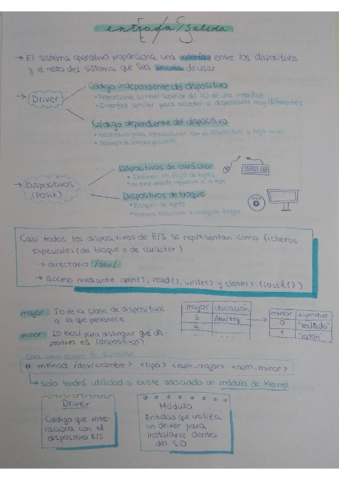 entrada/Salida
→ El sistema operativo proporciona una interfaz entre los dispositivos
y el resto del sistema que sea sencilla de usar
Driver
Código independiente del dispositivo
• Proporciona al nivel superior del SO de una interfaz
• Interfaz similar para acceder a dispositivos muy diferentes
Código dependiente del dispositivo
• Necesario para interaccionar con el dispositivo a bajo nivel
→ Dispositivos
(POSIX)
Dispositivos de carácter
Dispositivos de bloque
• Bloques de bytes
Casi todos los dispositivos de E/S se representan como ficheros
especiales (de bloque o de carácter)
→ directorio /dev/
→ acceso mediante open(), read(), write() y close() (ioctl())
major: ID de la clase de dispositivos
a la que pertenece
minor: ID local para distinguir qué dis-
positivo es (dispositivos)
major
3
4
/dev/tty
minor dispositivo
0 "teclado"
1 "ratón"
# mknod /dev/<nombre> <tipo> <num_major> <num_minor>
→ Solo tendrá utilidad si existe asociado un módulo de kernel
Driver
Código que inte-
racciona con el
dispositivo E/S
Módulo
Entidad que utiliza
un driver para
instalarse dentro
del SO